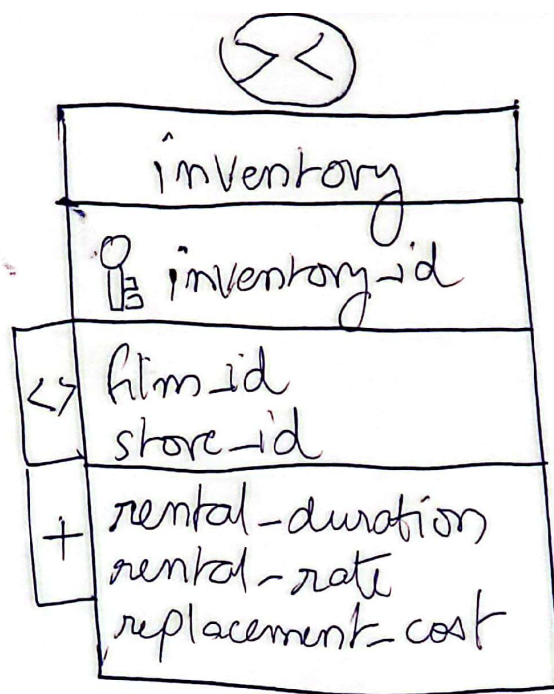 > <
inventory
inventory_id
<> film_id
store_id
+ rental_duration
rental_rate
replacement_cost